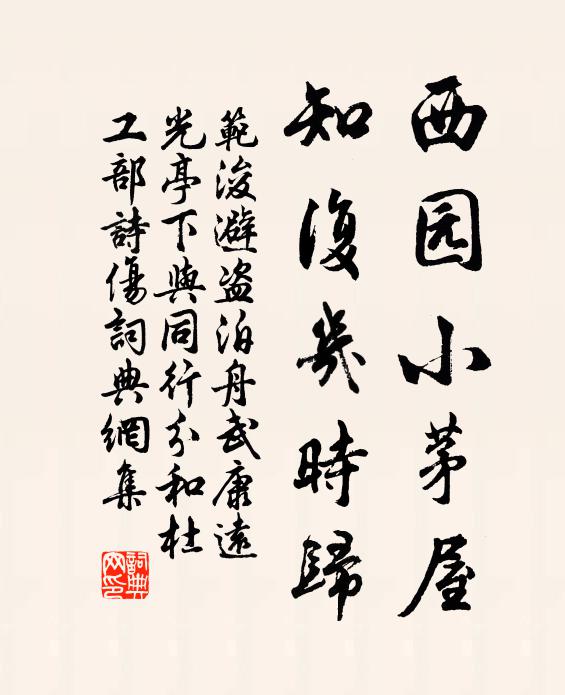 西园小茅屋
知復幾時歸
範浚避盗泊舟武康遠
光亭下與同行分和杜
工部詩傷詞典網集
詞典
网印